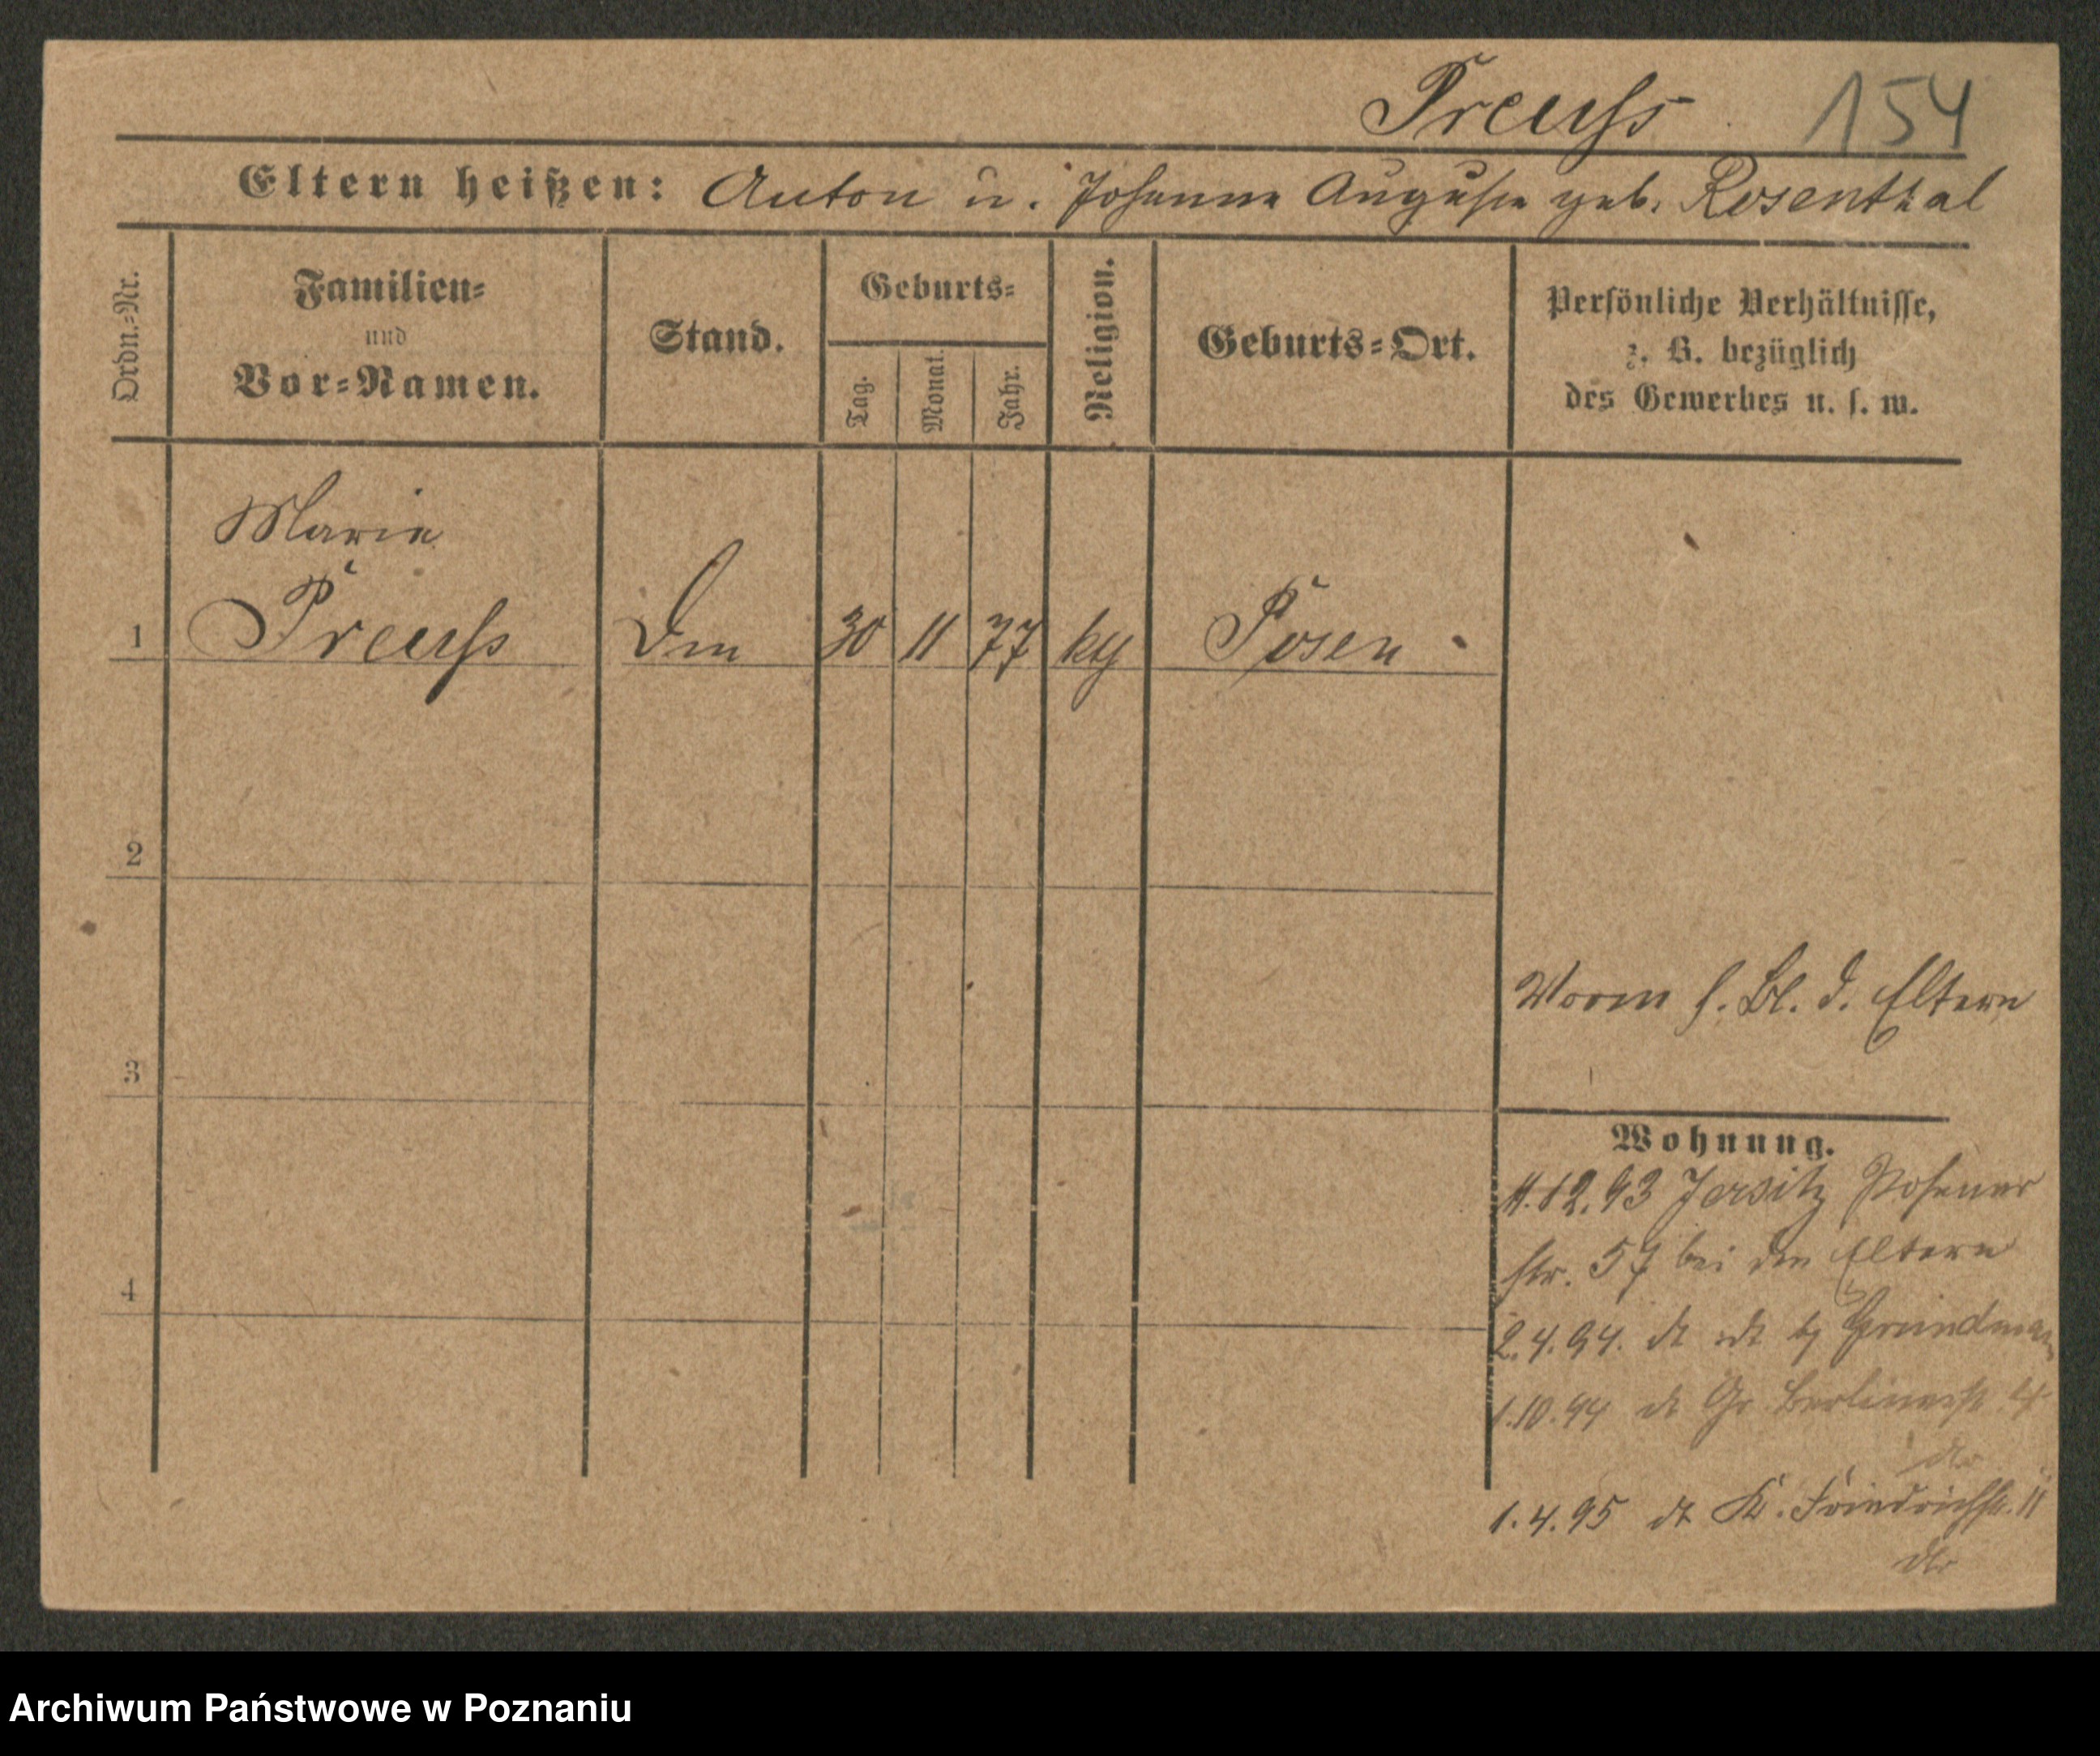 Preuſs 154
Eltern heißen: Anton u. Johanna Auguste geb. Rosenthal
Ordn.-Nr.
Familien-
und
Vor-Namen.
Stand.
Geburts-
Tag.
Monat.
Jahr.
Religion.
Geburts-Ort.
Persönliche Verhältnisse,
z. B. bezüglich
des Gewerbes u. s. w.
Marie
1 Preuſs 30 11 77 Posen
2
3
4
Vorm s. Bl. d. Eltern
Wohnung.
11.12.93 Jersitz Posener
str. 57 bei den Eltern
2.4.94. dt
1.10.94 dt Gr Berlinerstr
1.4.95 dt K. Friedrichstr. 11
Archiwum Państwowe w Poznaniu